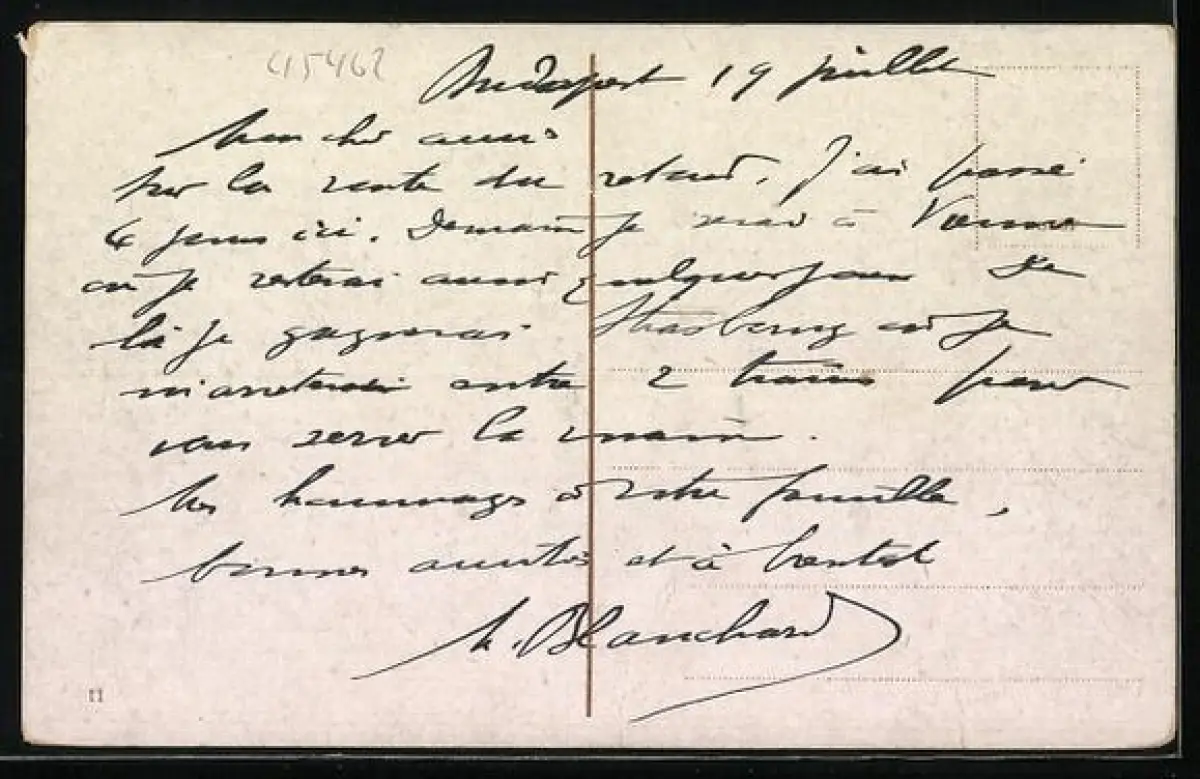 45462
Budapest 19 juillet
Mon cher ami
Sur la route du retour, j'ai passé
6 jours ici. Demain je serai à Vienne
où je resterai aussi quelques jours De
là je gagnerai Strasbourg où je
m'arreterai entre 2 trains pour
vous serrer la main.
Mes hommages à votre famille,
bonnes amitiés et à bientot
M. Blanchard
11